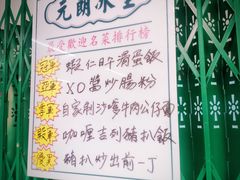 元朗冰室
最受歡迎名菜排行榜
冠軍 蝦仁日午滑蛋飯
亞軍 XO醬炒腸粉
季軍 自家制沙嗲牛肉公仔面
殿軍 咖喱吉列豬扒飯
優異 豬扒炒出前一丁